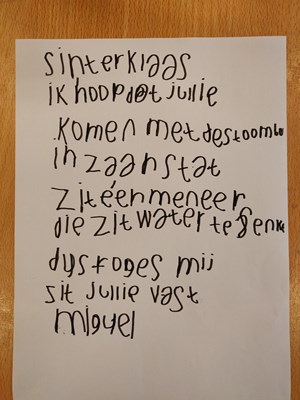 sinterklaas
ik hoop dat jullie
komen met destoombo
in zaanstat
zit éen meneer
die zit water te
dus
mij
zit jullie vast
miguel